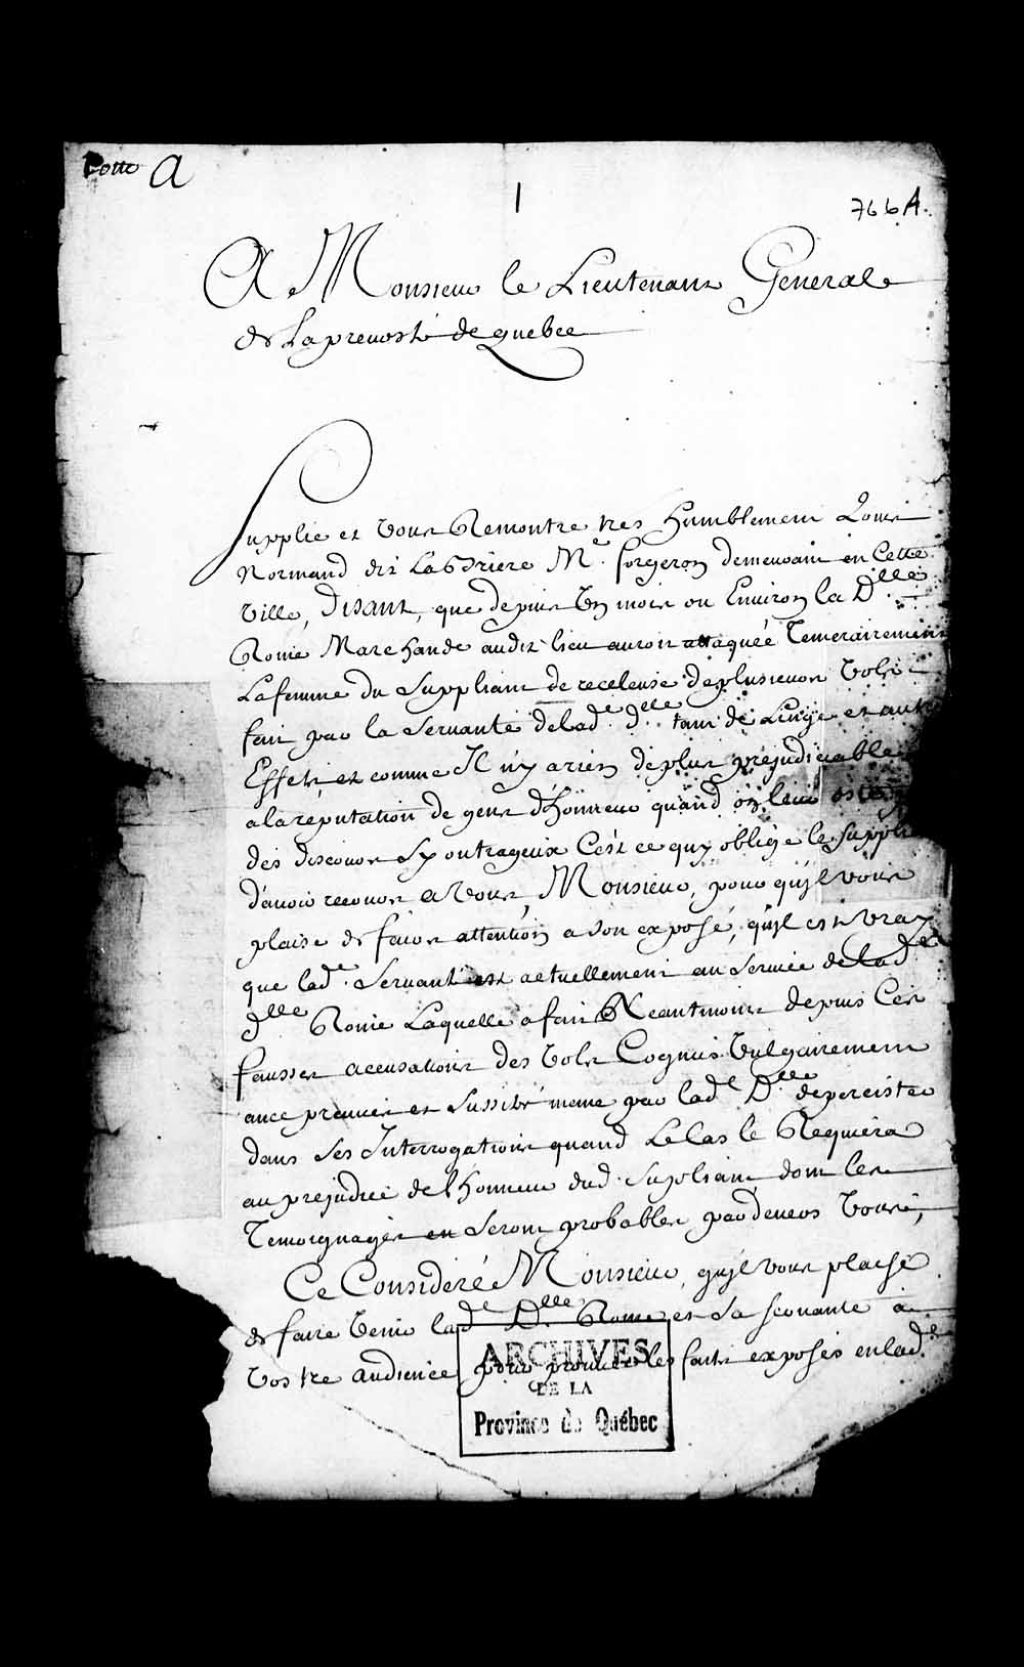 Cotte A
1
766A.
A Monsieur le Lieutenant General
de La prevosté de quebec
Supplie et vous Remontre tres humblement Louis
Normand dit LaBriere Me. forgeron demeurant en Cette
Ville, Disant, que depuis un mois ou Environ la Dlle
Roüie Marchande audit lieu auroit attaquée Temerairement
La femme du Suppliant de receleuse de plusieurs vols
fait par la Servante de lad.e d.lle tant de Linge et autre
Effets, et comme Il n'y a rien de plus préjudiciable
a la réputation de gens d'honneur quand on leur
des discours sy outrageux C'est ce quy oblige le supplia
d'avoir recours a vous, Monsieur, pour qu'jl vous
plaise de faire attention a son exposé, qu'jl est vray
que lad.e Servante est actuellement au Service de lad.e
D.lle Roüie Laquelle a fait Neantmoins depuis Ces
fausses accusations des vols Cognus vulgairement
 et Sussité meme par lad.e D.lle de percister
dans ses Interrogations quand Le Cas le Requiera
au prejudice de l'honneur dud. Supliant dont les
Temoignages en Seront probables par devers vous,
Ce Consideré Monsieur, qu'jl vous plaise
de faire venir lad.e D.lle Roüie et sa servante à
vostre audience pour prouver les faits exposés en lad.e
ARCHIVES
DE LA
Province de Québec